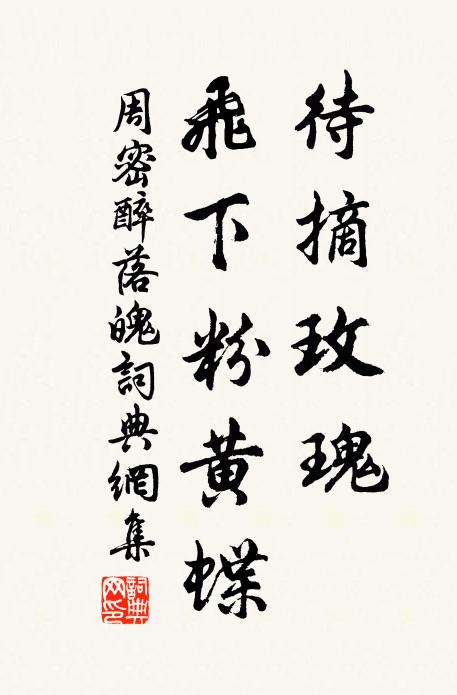 待摘玫瑰
飛下粉黃蝶
周密醉落魄詞典網集
詞典網印